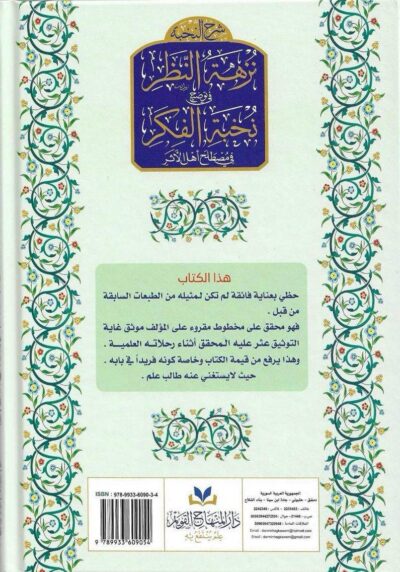 شرح النخبة
نزهة النظر
في توضيح
نخبة الفكر
في مصطلح أهل الأثر
هذا الكتاب
حظي بعناية فائقة لم تكن لمثيله من الطبعات السابقة
من قبل .
فهو محقق على مخطوط مقروء على المؤلف موثق غاية
التوثيق عثر عليه المحقق أثناء رحلاته العلمية .
وهذا يرفع من قيمة الكتاب وخاصة كونه فريداً في بابه .
حيث لا يستغني عنه طالب علم .
ISBN : 978-9933-6090-3-4
9 789933 609034
دار المنهاج القويم
علم ينتفع به
الجمهورية العربية السورية
دمشق - حلبوني - جادة ابن سينا - بناء